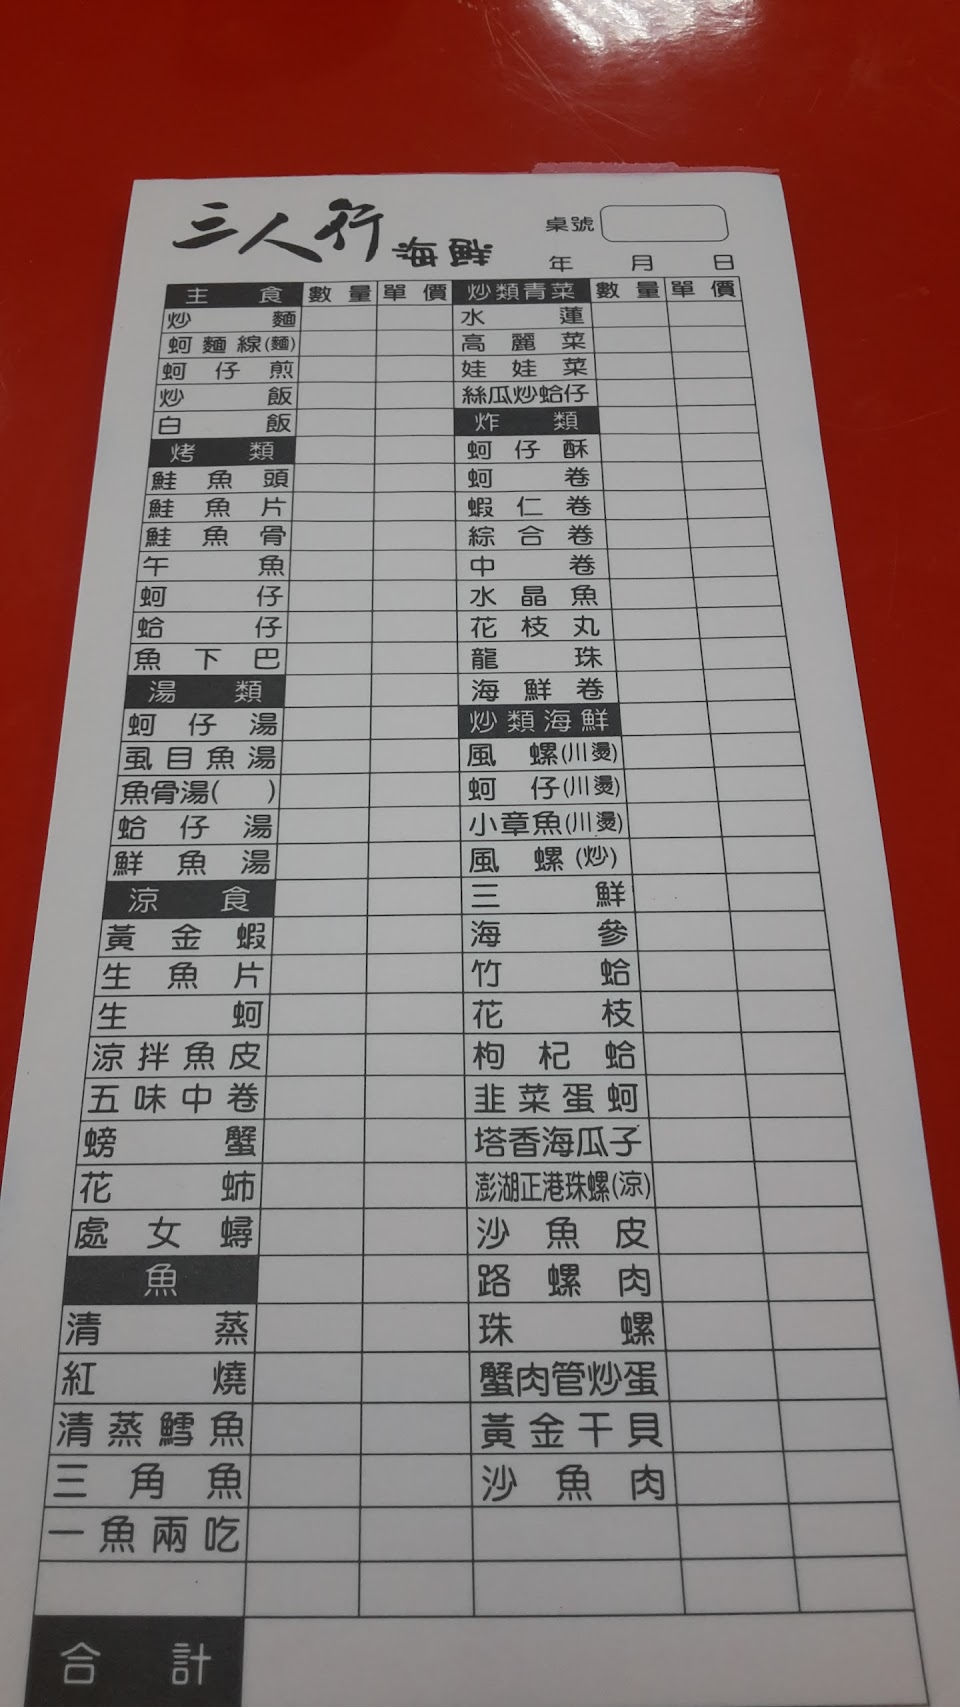 三人行 海鮮
桌號
年 月 日
主食 數量 單價
炒麵
蚵麵線(麵)
蚵仔煎
炒飯
白飯
烤類
鮭魚頭
鮭魚片
鮭魚骨
午魚
蚵仔
蛤仔
魚下巴
湯類
蚵仔湯
虱目魚湯
魚骨湯( )
蛤仔湯
鮮魚湯
涼食
黃金蝦
生魚片
生蚵
涼拌魚皮
五味中卷
螃蟹
花蛳
處女蟳
魚
清蒸
紅燒
清蒸鱈魚
三角魚
一魚兩吃
炒類青菜 數量 單價
水蓮
高麗菜
娃娃菜
絲瓜炒蛤仔
炸類
蚵仔酥
蚵卷
蝦仁卷
綜合卷
中卷
水晶魚
花枝丸
龍珠
海鮮卷
炒類海鮮
風螺(川燙)
蚵仔(川燙)
小章魚(川燙)
風螺(炒)
三鮮
海參
竹蛤
花枝
枸杞蛤
韭菜蛋蚵
塔香海瓜子
澎湖正港珠螺(涼)
沙魚皮
路螺肉
珠螺
蟹肉管炒蛋
黃金干貝
沙魚肉
合計